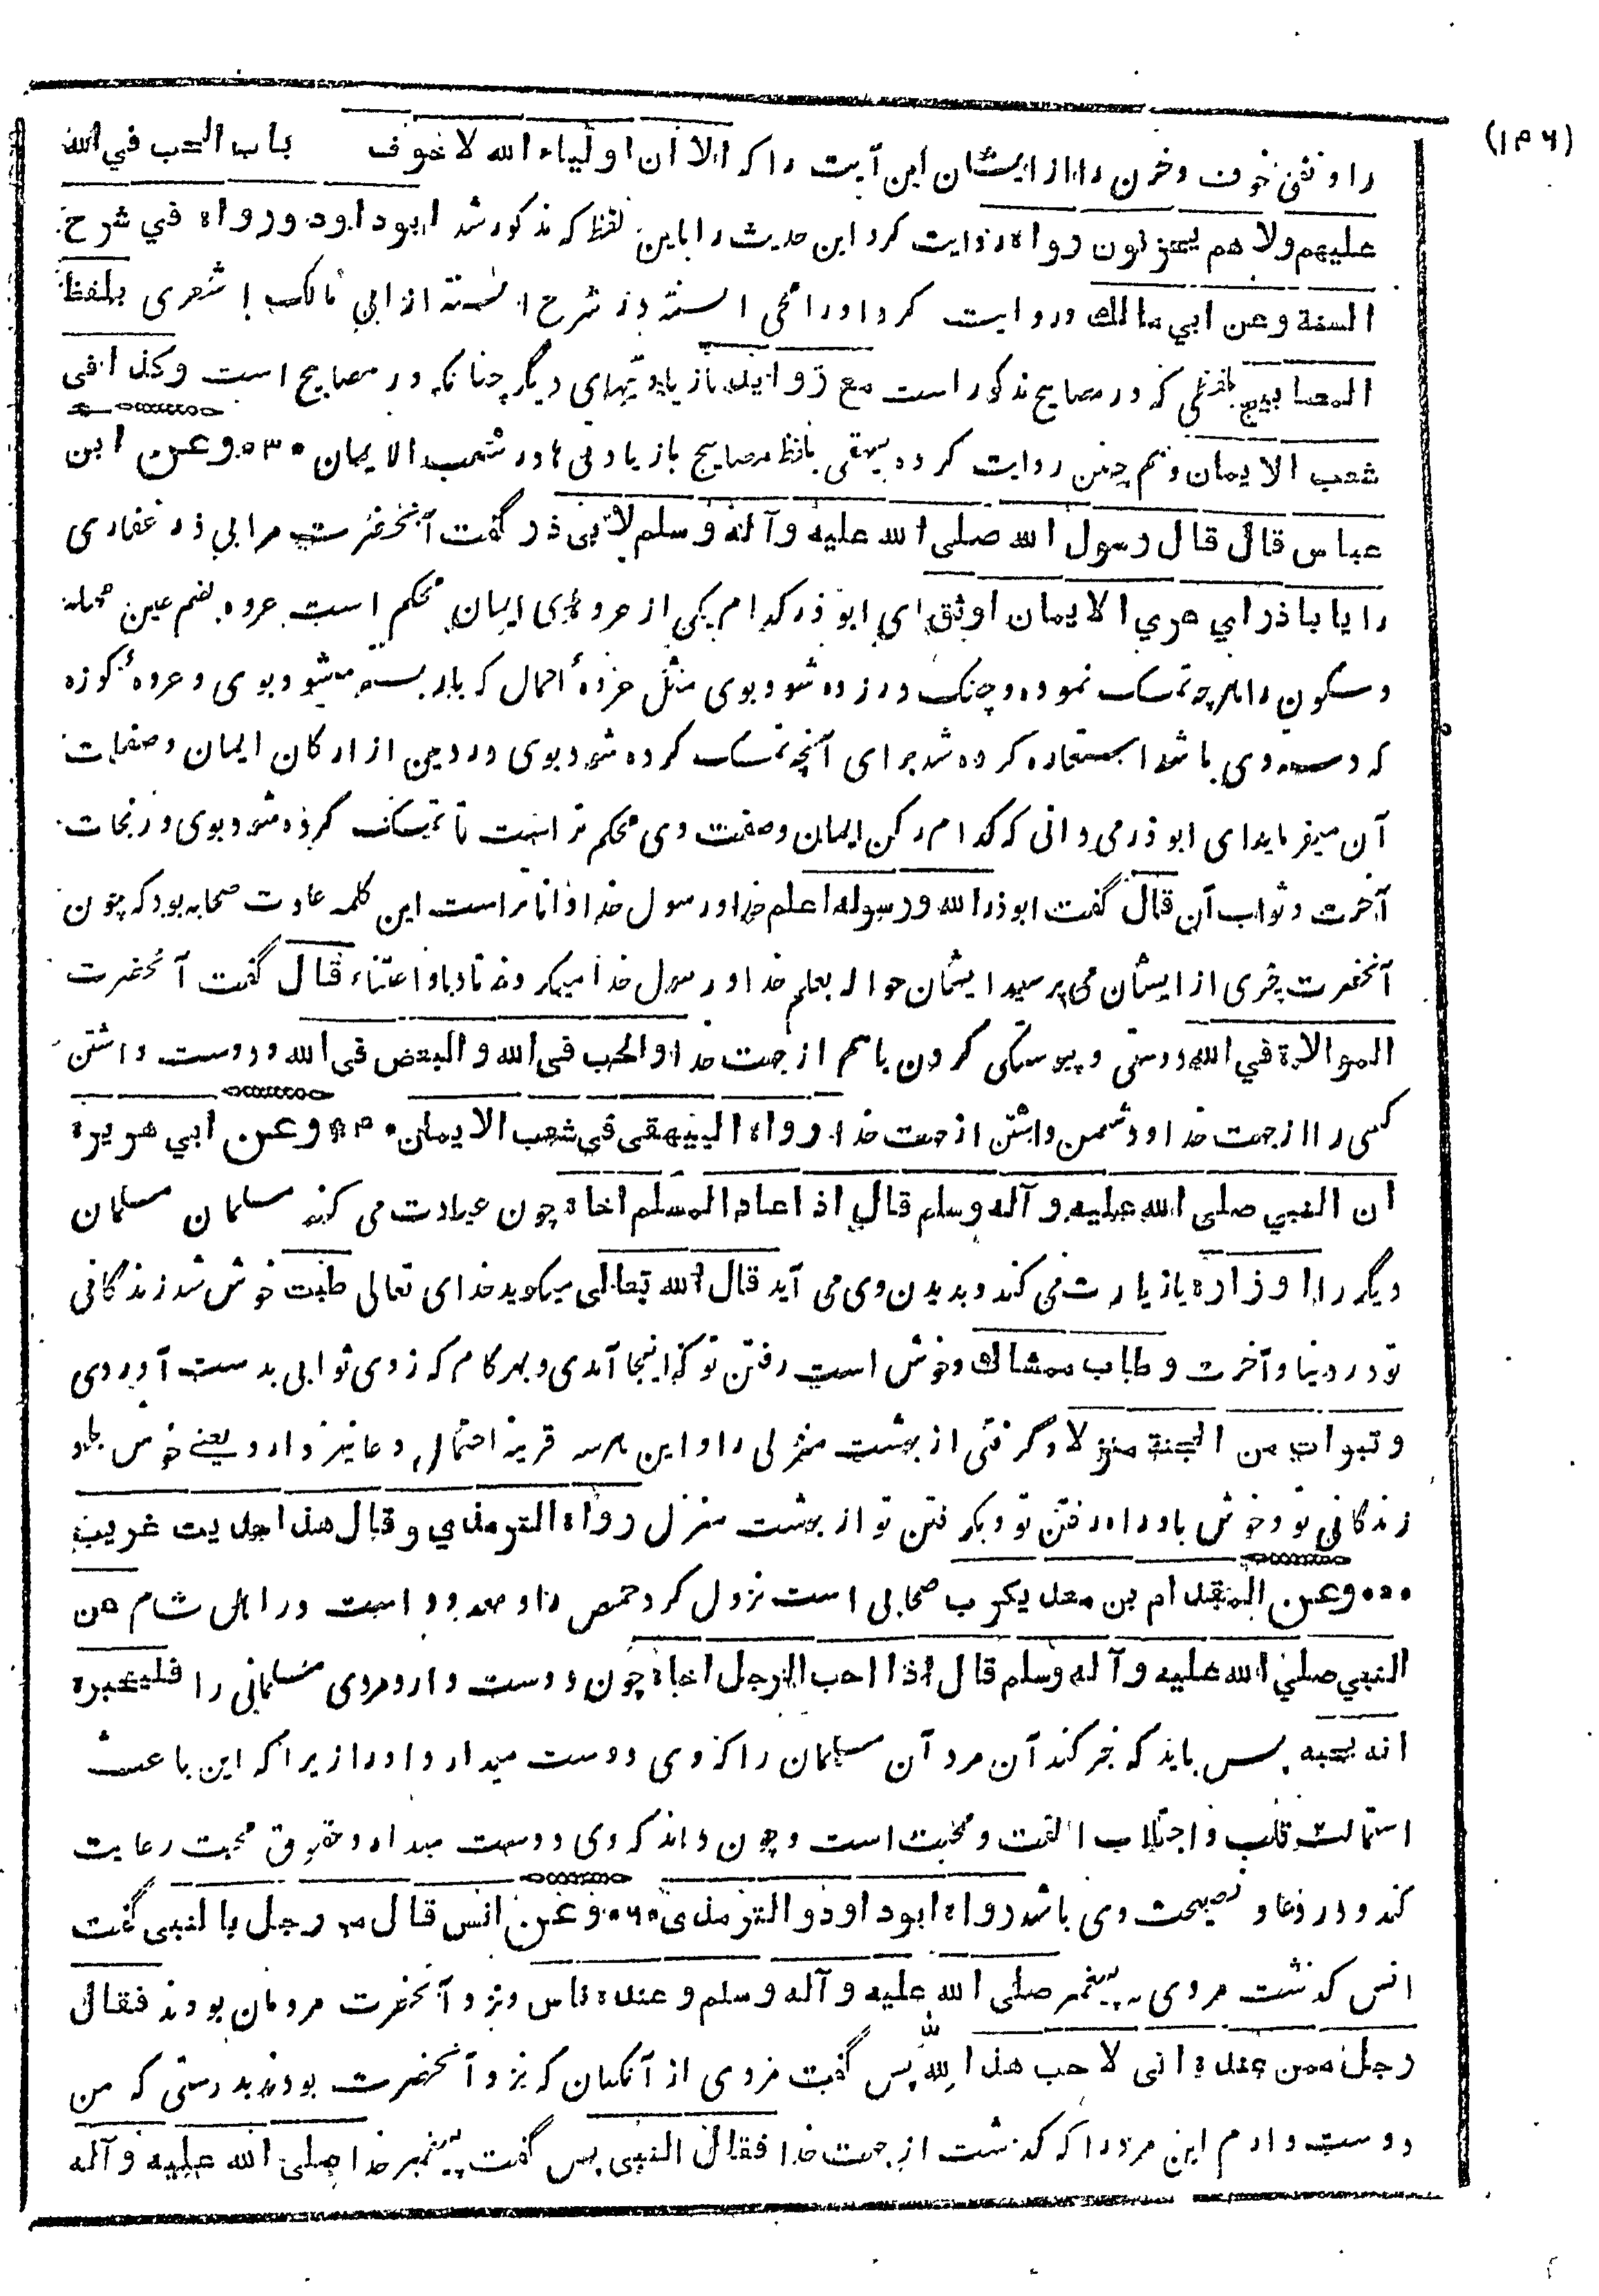 (۱۴۶)
باب الحب في الله
را و نفی خوف و حزن را از ایشان این آیت را که الا ان اولیاء الله لا خوف
علیهم ولا هم یحزنون رواه روایت کرد این حدیث را باین لفظ که مذکور شد ابو داود و رواه في شرح
السنة وعن ابي مالك و روایت کرد او را محی السنة در شرح السنة از ابی مالک اشعری بلفظ
المصابیح بلفظی که در مصابیح مذکور است مع زواید با زیادتیهای دیگر چنانکه در مصابیح است وکذا فی
شعب الایمان و هم چنین روایت کرده بیهقی بلفظ مصابیح با زیادتی ها در شعب الایمان ۰۳۰ وعن ابن
عباس قال قال رسول الله صلی الله علیه وآله وسلم لابی ذر گفت آنحضرت مر ابی ذر غفاری
را یا باذر اي عري الایمان اوثق ای ابو ذر کدام یکی از عروه‌های ایمان محکم است عروه بضم عین مهمله
و سکون را هرچه تمسک نموده و چنگ در زده شود بوی مثل عروهٔ احمال که بار بسته میشود بوی و عروهٔ کوزه
که دسته وی باشد استعاره کرده شد برای آنچه تمسک کرده شود بوی در دین از ارکان ایمان و صفات
آن میفرماید ای ابو ذر می دانی که کدام رکن ایمان و صفت وی محکم تر است تا تمسک کرده شود بوی و نجات
آخرت و ثواب آن قال گفت ابوذر الله ورسوله اعلم خدا و رسول خدا داناتر است این کلمه عادت صحابه بود که چون
آنحضرت چیزی از ایشان می پرسید ایشان حواله بعلم خدا و رسول خدا میکردند تادبا و اعتناء قال گفت آنحضرت
الموالاة في الله دوستی و پیوستگی کردن با هم از جهت خدا والحب فی الله والبغض فی الله و دوست داشتن
کسی را از جهت خدا و دشمن داشتن از جهت خدا رواه البیهقی في شعب الایمان ۰۴۰ وعن ابي هریرة
ان النبي صلی الله علیه و آله وسلم قال اذا عاد المسلم اخاه چون عیادت می کند مسلمان مسلمان
دیگر را او زاره یا زیارت می کند و بدیدن وی می آید قال الله تعالی میگوید خدای تعالی طبت خوش شد زندگانی
تو در دنیا و آخرت و طاب ممشاك و خوش است رفتن تو که اینجا آمدی و بهر گام که زدی ثوابی بدست آوردی
وتبوات من الجنة منزلا و گرفتی از بهشت منزلی را و این هر سه قرینه احتمال دعا نیز دارد یعنی خوش باد
زندگانی تو و خوش باد راه رفتن تو و بگرفتن تو از بهشت منزل رواه الترمذي و قال هذا حدیث غریب
۰۵۰ وعن المقدام بن معد یکرب صحابی است نزول کرد حمص را و معدود است در اهل شام عن
النبي صلي الله علیه و آله وسلم قال اذا احب الرجل اخاه چون دوست دارد مردی مسلمانی را فلیخبره
انه یحبه پس باید که خبر کند آن مرد آن مسلمان را که وی دوست میدارد او را زیرا که این باعث
استمالت قلب و اجتلاب الفت و محبت است و چون داند که وی دوست میدارد حقوق محبت رعایت
کند و در دعا و نصیحت وی باشد رواه ابو داود و الترمذی ۰۶۰ وعن انس قال مر رجل بالنبی گفت
انس گذشت مردی به پیغمبر صلی الله علیه و آله وسلم وعنده ناس و نزد آنحضرت مردمان بودند فقال
رجل ممن عنده انی لاحب هذا لله پس گفت مردی از آنکسان که نزد آنحضرت بودند بدرستی که من
دوست دارم این مرد را که گذشت از جهت خدا فقال النبی پس گفت پیغمبر خدا صلی الله علیه و آله